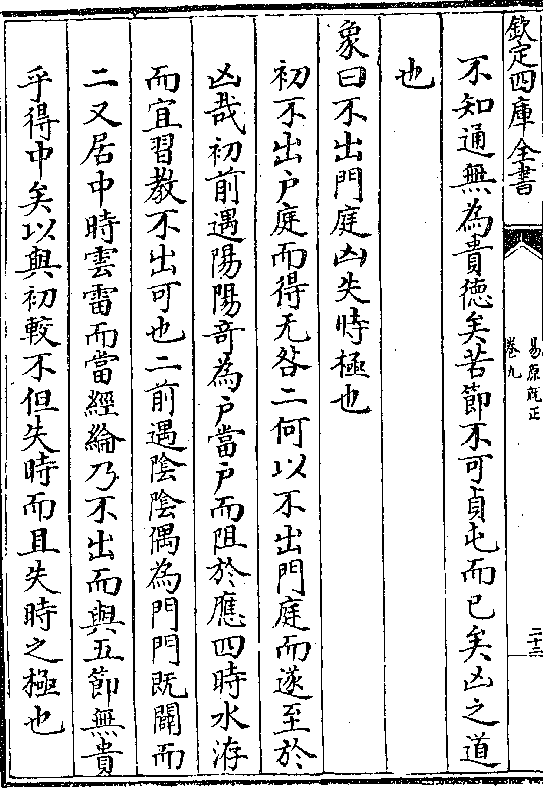 欽定四庫全書
易原就正
卷九
二十二
不知通無為貴德矣苦節不可貞屯而已矣凶之道
也
象曰不出門庭凶失時極也
初不出户庭而得无咎二何以不出門庭而遂至於
凶哉初前遇陽陽竒為户當户而阻於應四時水洊
而宜習教不出可也二前遇陰陰偶為門門既闢而
二又居中時雲雷而當經綸乃不出而與五節無貴
乎得中矣以與初較不但失時而且失時之極也